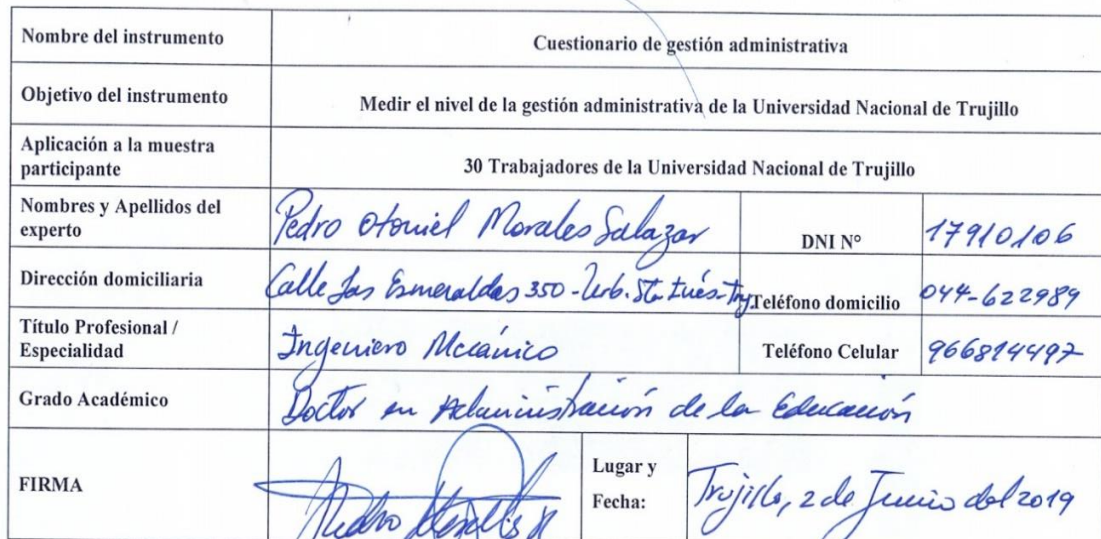 Nombre del instrumento Cuestionario de gestión administrativa
Objetivo del instrumento Medir el nivel de la gestión administrativa de la Universidad Nacional de Trujillo
Aplicación a la muestra
participante 30 Trabajadores de la Universidad Nacional de Trujillo
Nombres y Apellidos del
experto Pedro Otoniel Morales Salazar DNI N° 17910106
Dirección domiciliaria Calle Las Esmeraldas 350 - Urb. Sta Inés - Teléfono domicilio 044-622989
Título Profesional /
Especialidad Ingeniero Mecánico Teléfono Celular 966814497
Grado Académico Doctor en Administración de la Educación
FIRMA
Lugar y
Fecha: Trujillo, 2 de Junio del 2019